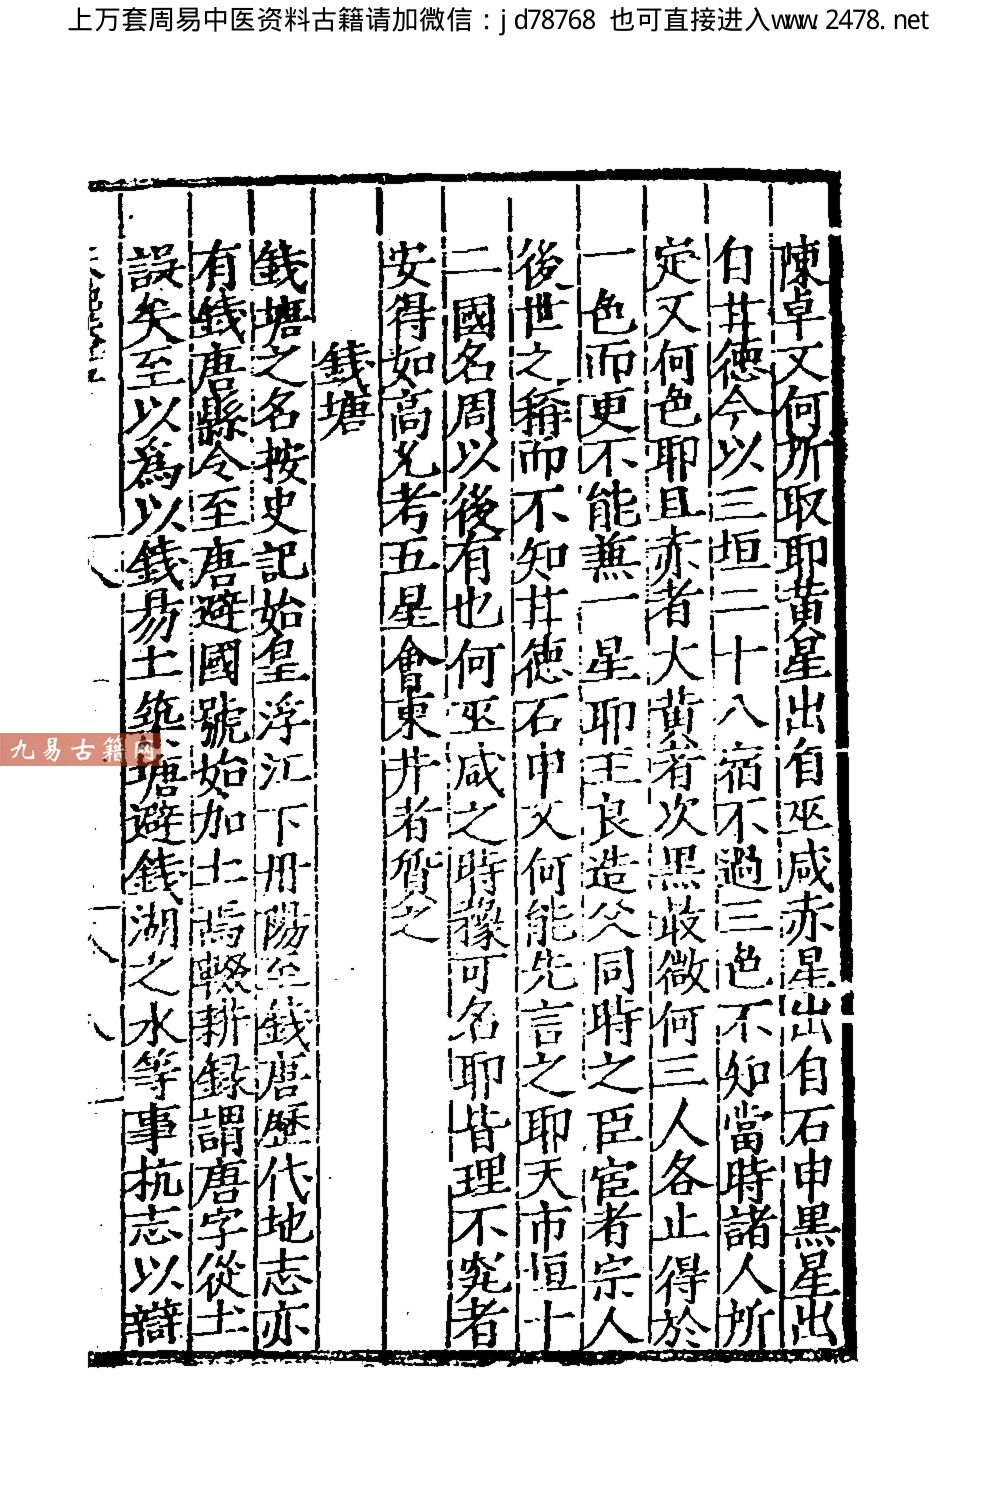 上万套周易中医资料古籍请加微信：jd78768 也可直接进入www.2478.net
陳卓又何所取耶黄星出自巫咸赤星出自石申黒星出
自甘徳今以三垣二十八宿不過三色不知當時諸人所
定又何色耶且赤者大黄者次黒最微何三人各止得於
一色而更不能兼一星耶王良造父同時之臣宦者宗人
後世之稱而不知甘徳石申又何能先言之耶天市垣十
二國名周以後有也何巫咸之時豫可名耶皆理不究者
安得如高允考五星會東井者質之
錢塘
錢塘之名按史記始皇浮江下丹陽至錢唐歷代地志亦
有錢唐縣令至唐避國號始加土焉輟耕録謂唐字從土
誤矣至以為以錢易土築塘避錢湖之水等事杭志以辯
九易古籍网